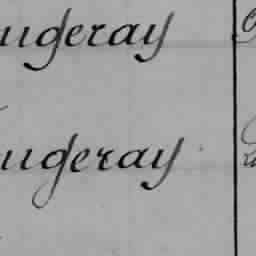 ugeray
ugeray